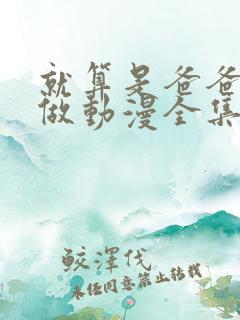 就算是爸爸
做動漫全集
鲛澤代
未經同意禁止轉載